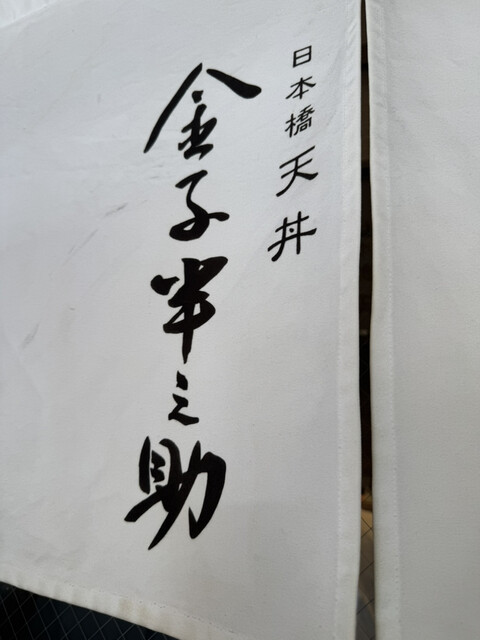 日本橋 天丼
金子半之助